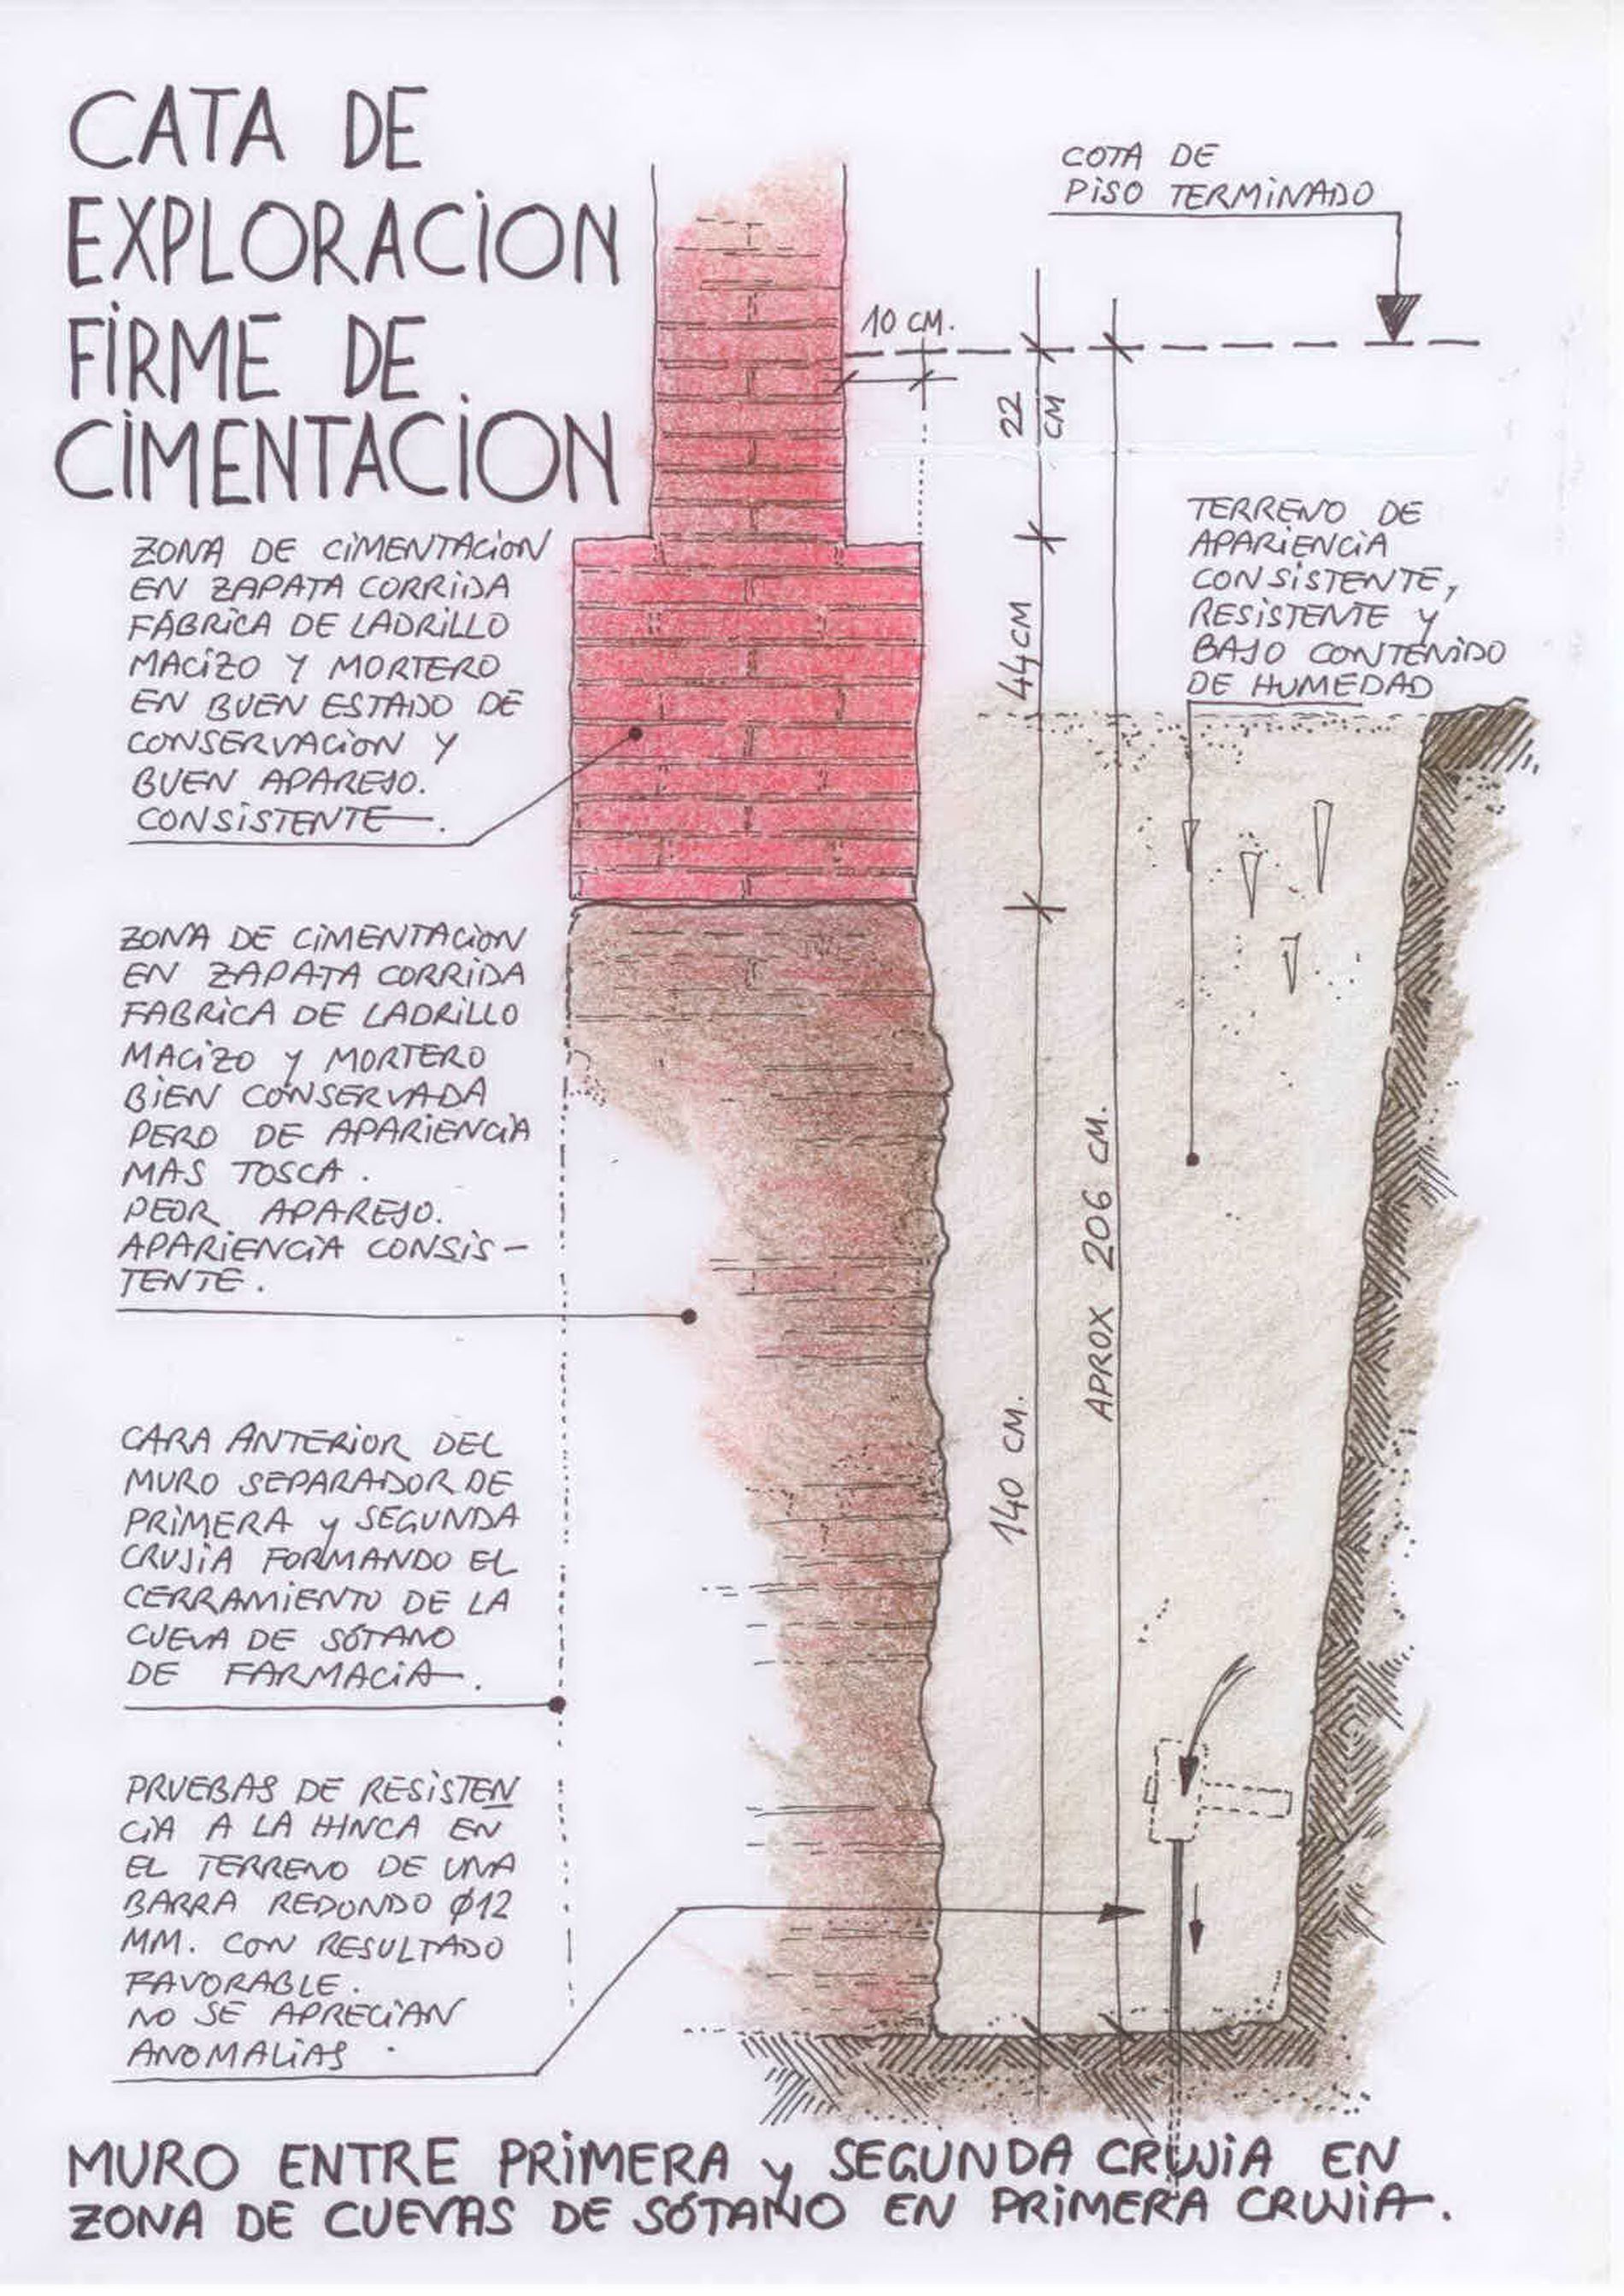 CATA DE
EXPLORACION
FIRME DE
CIMENTACION
COTA DE
PISO TERMINADO
10 CM.
22
CM
44CM
TERRENO DE
APARIENCIA
CONSISTENTE,
RESISTENTE y
BAJO CONTENIDO
DE HUMEDAD
ZONA DE CIMENTACION
EN ZAPATA CORRIDA
FÁBRICA DE LADRILLO
MACIZO Y MORTERO
EN BUEN ESTADO DE
CONSERVACION Y
BUEN APAREJO.
CONSISTENTE.
ZONA DE CIMENTACION
EN ZAPATA CORRIDA
FABRICA DE LADRILLO
MACIZO y MORTERO
BIEN CONSERVADA
PERO DE APARIENCIA
MAS TOSCA.
PEOR APAREJO.
APARIENCIA CONSIS-
TENTE.
APROX 206 CM.
140 CM.
CARA ANTERIOR DEL
MURO SEPARADOR DE
PRIMERA y SEGUNDA
CRUJIA FORMANDO EL
CERRAMIENTO DE LA
CUEVA DE SÓTANO
DE FARMACIA.
PRUEBAS DE RESISTEN
CIA A LA HINCA EN
EL TERRENO DE UNA
BARRA REDONDO ϕ12
MM. CON RESULTADO
FAVORABLE.
NO SE APRECIAN
ANOMALIAS.
MURO ENTRE PRIMERA y SEGUNDA CRUJIA EN
ZONA DE CUEVAS DE SÓTANO EN PRIMERA CRUJIA.